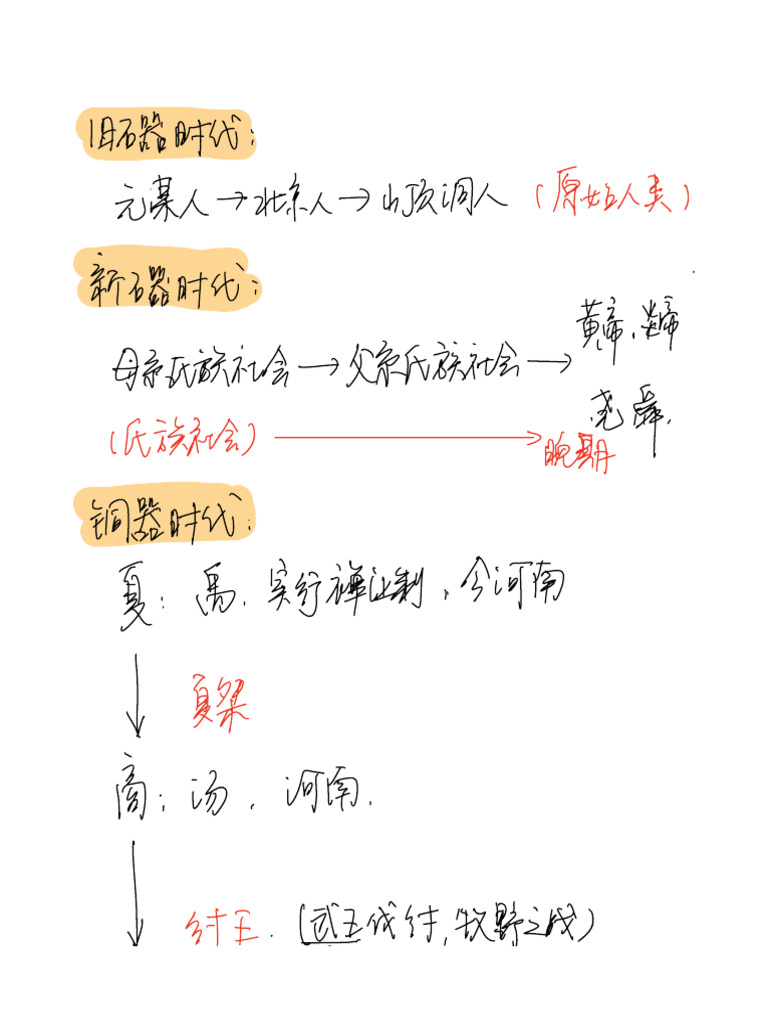 旧石器时代：
元某人→北京人→山顶洞人（原始人类）
新石器时代：
黄帝、炎帝
母系氏族社会→父系氏族社会→
尧舜.
（氏族社会）→晚期
铜器时代：
夏：禹. 实行禅让制，今河南
↓ 夏桀
商：汤，河南.
↓ 纣王. (武王伐纣,牧野之战)